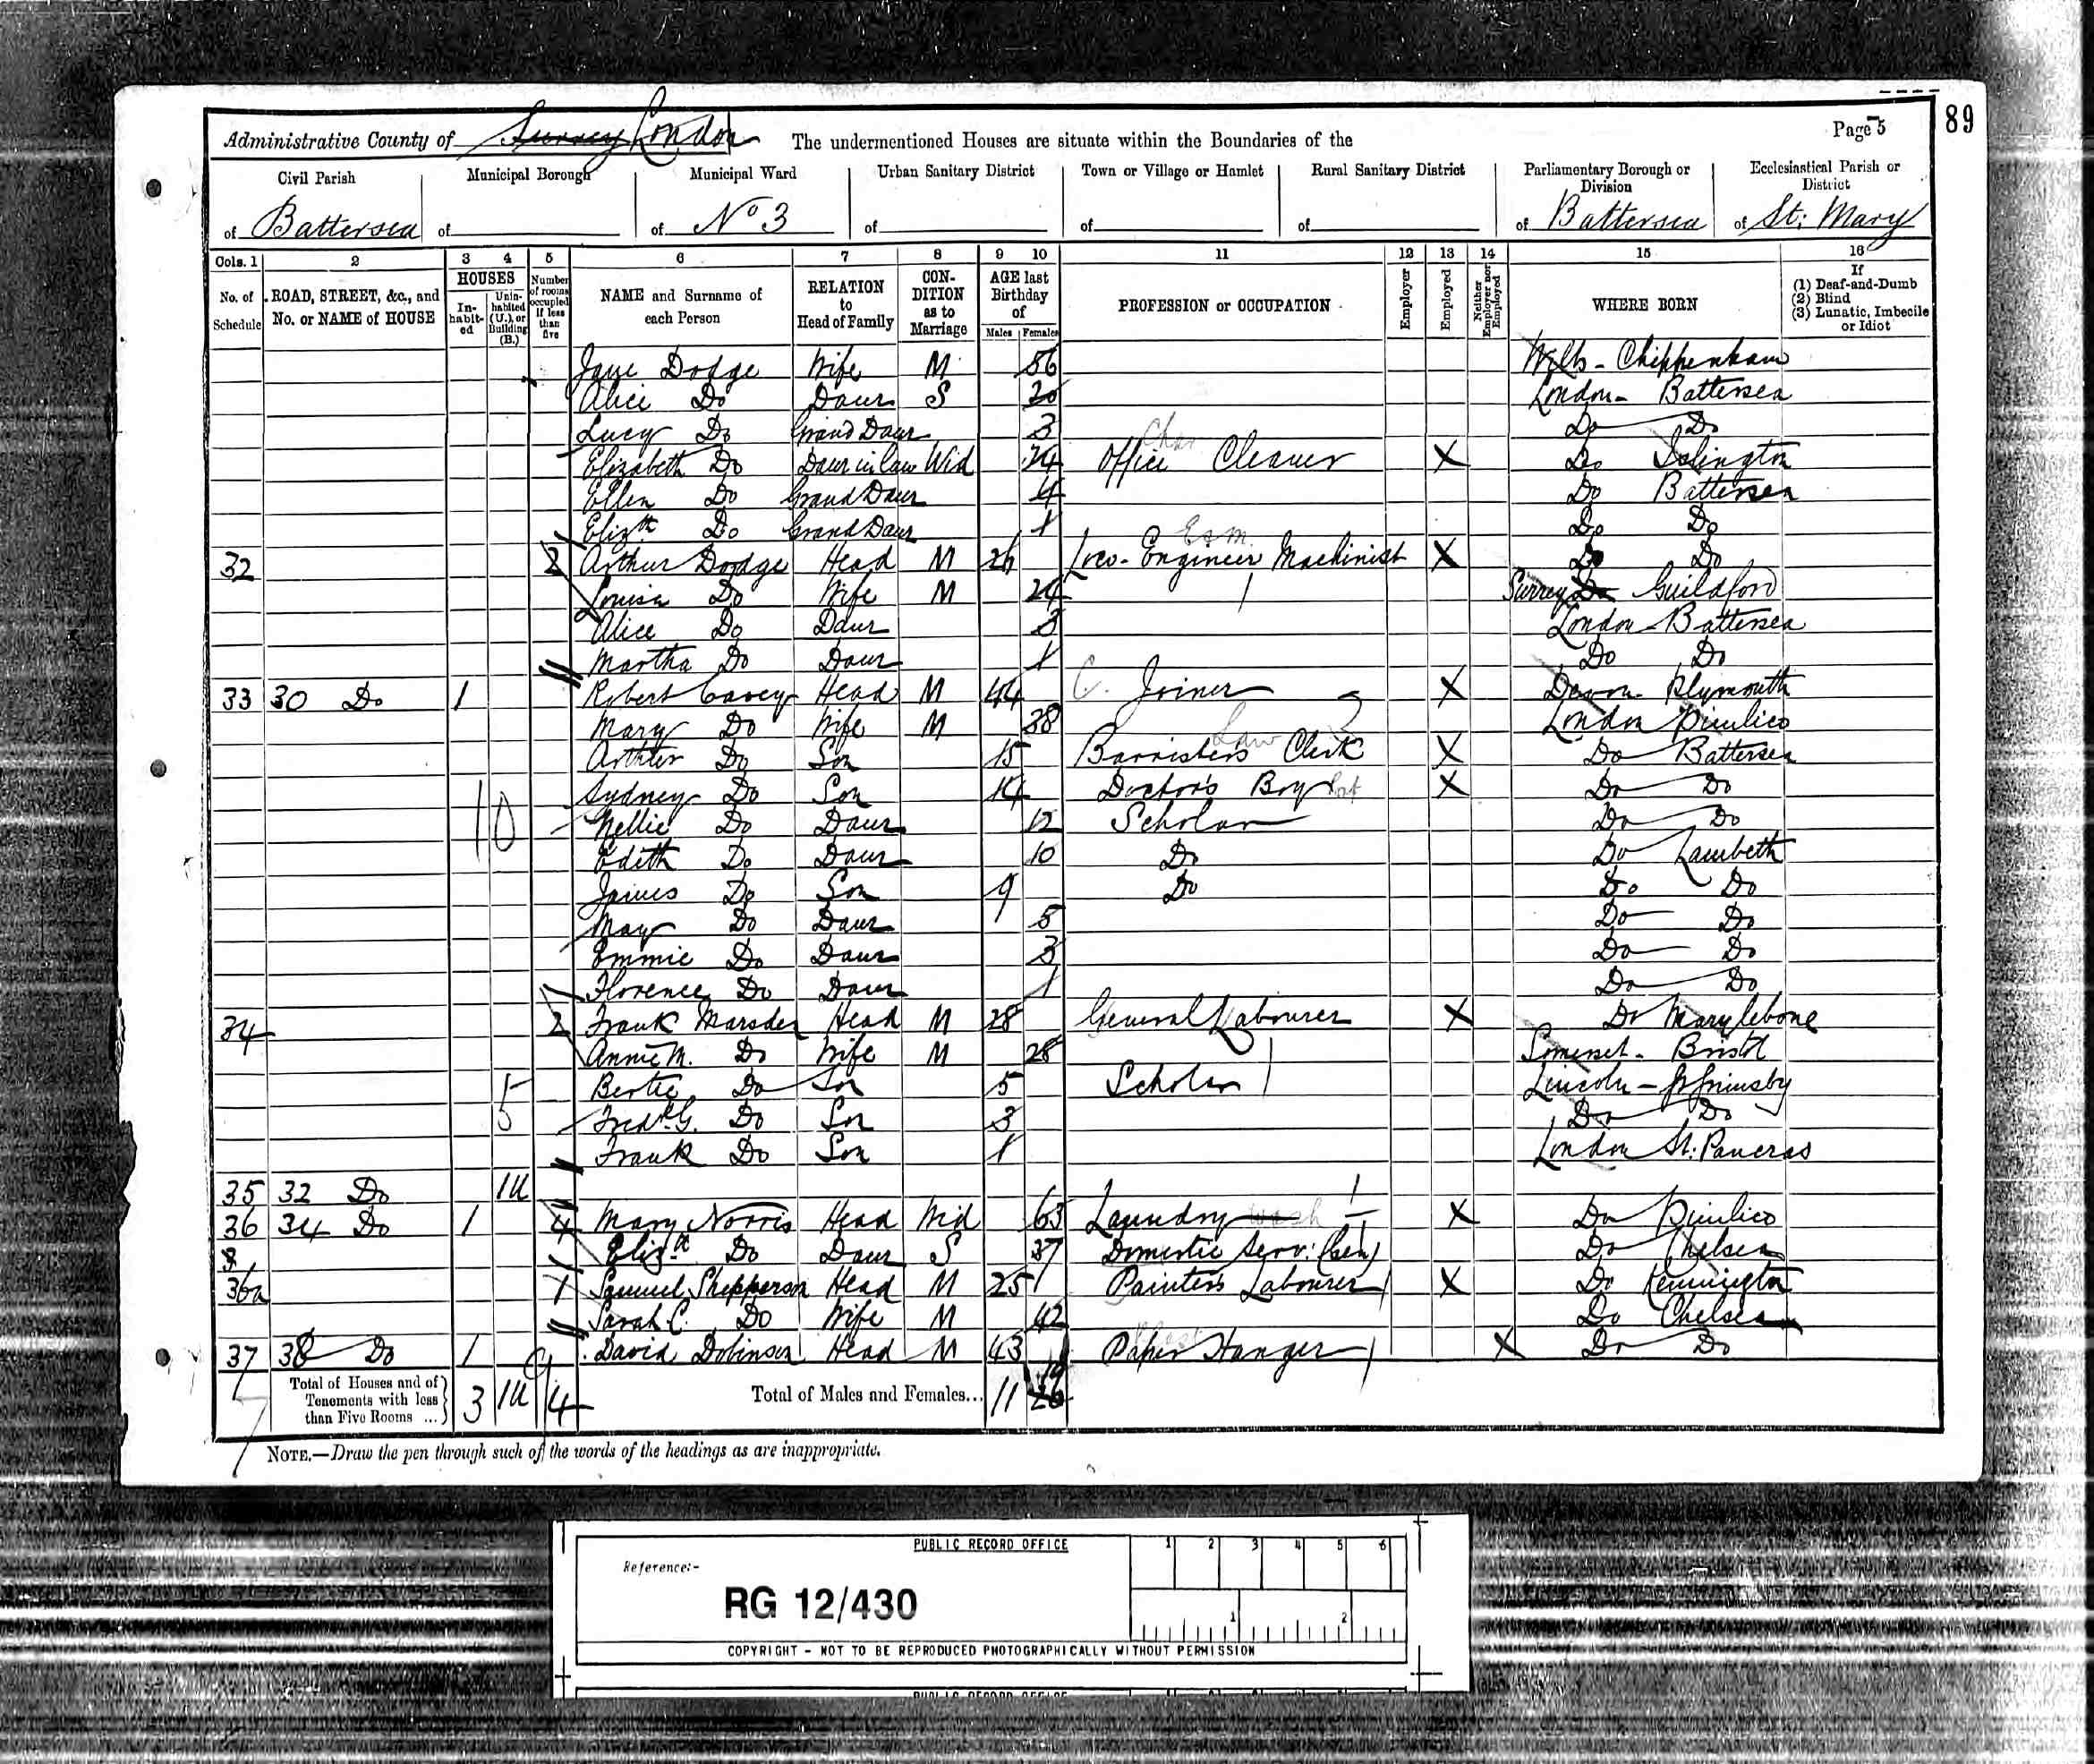 89
Administrative County of Surrey London The undermentioned Houses are situate within the Boundaries of the Page 5
Civil Parish Municipal Borough Municipal Ward Urban Sanitary District Town or Village or Hamlet Rural Sanitary District Parliamentary Borough or Division Ecclesiastical Parish or District
of Battersea of of No 3 of of of of Battersea of St: Mary
Cols. 1 2 3 4 5 6 7 8 9 10 11 12 13 14 15 16
No. of Schedule ROAD, STREET, &c., and No. or NAME of HOUSE HOUSES Inhabited Uninhabited (U.), or Building (B.) Number of rooms occupied if less than five NAME and Surname of each Person RELATION to Head of Family CONDITION as to Marriage AGE last Birthday of Males Females PROFESSION or OCCUPATION Employer Employed Neither Employer nor Employed WHERE BORN If (1) Deaf-and-Dumb (2) Blind (3) Lunatic, Imbecile or Idiot
Jane Dodge Wife M 56 Wilts - Chippenham
Alice Do Daur S 20 London - Battersea
Lucy Do Grand Daur 3 Do Do
Elizabeth Do Daur in law Wid 24 Office Cleaner X Do Islington
Ellen Do Grand Daur 4 Do Battersea
Elizth Do Grand Daur 1 Do Do
32 2 Arthur Dodge Head M 26 Loco - Engineer Machinist X Do Do
Louisa Do Wife M 24 Surrey Do Guildford
Alice Do Daur 3 London Battersea
Martha Do Daur 1 Do Do
33 30 Do 1 Robert Cavey Head M 44 C. Joiner X Devon - Plymouth
Mary Do Wife M 38 London Pimlico
Arthur Do Son 15 Barristers Law Clerk X Do Battersea
Sydney Do Son 14 Doctor's Boy X Do Do
10 Nellie Do Daur 12 Scholar Do Do
Edith Do Daur 10 Do Do Lambeth
James Do Son 9 Do Do Do
May Do Daur 5 Do Do
Emmie Do Daur 3 Do Do
Florence Do Daur 1 Do Do
34 2 Frank Marsden Head M 28 General Labourer X Do Marylebone
Annie M. Do Wife M 28 Somerset - Bristol
5 Bertie Do Son 5 Scholar Lincoln - Gt Grimsby
Fredk G. Do Son 3 Do Do
Frank Do Son 1 London St: Pancras
35 32 Do 1U
36 34 Do 1 4 Mary Norris Head Wid 63 Laundry wash X Do Pimlico
Elizth Do Daur S 37 Domestic Serv: (Gen) Do Chelsea
36a 1 Samuel Shepperson Head M 25 Painter's Labourer X Do Kennington
Sarah C. Do Wife M 42 Do Chelsea
37 38 Do 1 David Dobinson Head M 43 Paper Hanger X Do Do
Total of Houses and of Tenements with less than Five Rooms ... 3 1U 4 Total of Males and Females... 11 26 19
NOTE.—Draw the pen through such of the words of the headings as are inappropriate.
PUBLIC RECORD OFFICE
1 2 3 4 5 6
Reference:-
RG 12/430
1 2
COPYRIGHT - NOT TO BE REPRODUCED PHOTOGRAPHICALLY WITHOUT PERMISSION
PUBLIC RECORD OFFICE